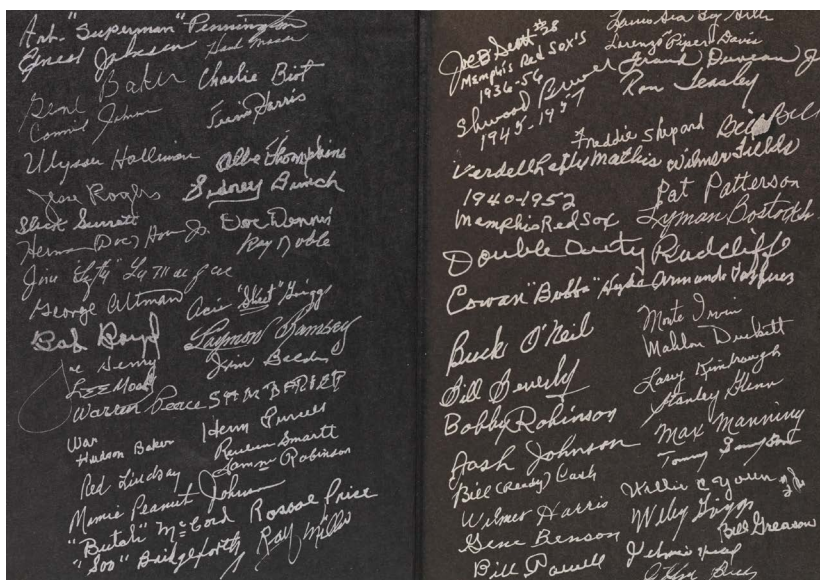 Art "Superman" Pennington
Ernest Johnson
Gene Baker Charlie Biot
Connie Johnson
Harris
Ulysses Hollimon Allie Thompkins
Jesse Rogers Sidney Bunch
Slick Surratt Doc Dennis
Ray Noble
Jim "Lefty" LaMarque
George Altman Acie "Skeet" Griggs
Bob Boyd Laymon Ramsey
Joe Henry Jim
Lee Moody
Warren Peace Sam Barber
War
Hudson Baker Herm Purcell
Reuben Smartt
Red Lindsay Sammie Robinson
Mamie Peanut Johnson
"Butch" McCord Roscoe Price
"Soo" Bridgeforth Ray Miller
Joe B Scott #38
Memphis Red Sox's
1936-56
Lorenzo "Piper" Davis
Sherwood Brewer Frank Duncan Jr
1945-1957
Ron Teasley
Freddie Shepard Bill
Verdell Lefty Mathis Wilmer Fields
1940-1952
Memphis Red Sox
Pat Patterson
Lyman Bostock Sr.
Double Duty Radcliffe
Cowan "Bubba" Hyde Armando Vazquez
Buck O'Neil
Monte Irvin
Mahlon Duckett
Bill Beverly
Larry Kimbrough
Stanley Glenn
Bobby Robinson
Max Manning
Josh Johnson
Tommy
Bill (Ready) Cash
Wilmer Harris Willie C Young
Gene Benson Wiley Griggs
Bill Greason
Bill Powell